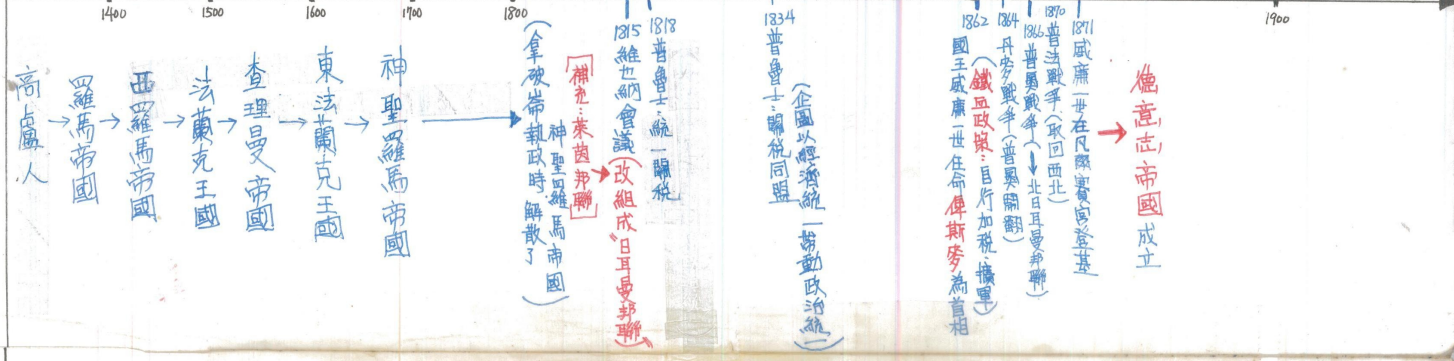 1400
1500
1600
1700
1800
1900
高盧人
→羅馬帝國
→西羅馬帝國
→法蘭克王國
→查理曼帝國
→東法蘭克王國
→神聖羅馬帝國
(拿破崙執政時
神聖羅馬帝國
解散了)
[補充:萊茵邦聯]
1815 維也納會議(改組成"日耳曼邦聯")
1818 普魯士:統一關稅
1834 普魯士:關稅同盟
(企圖以經濟統一帶動政治統一)
1862 國王威廉一世任命俾斯麥為首相
(鐵血政策:自行加稅、擴軍)
1864 丹麥戰爭(普奧鬧翻)
1866 普奧戰爭(→北日耳曼邦聯)
1870 普法戰爭(取回西北)
1871 威廉一世在凡爾賽宮登基
→德意志帝國成立